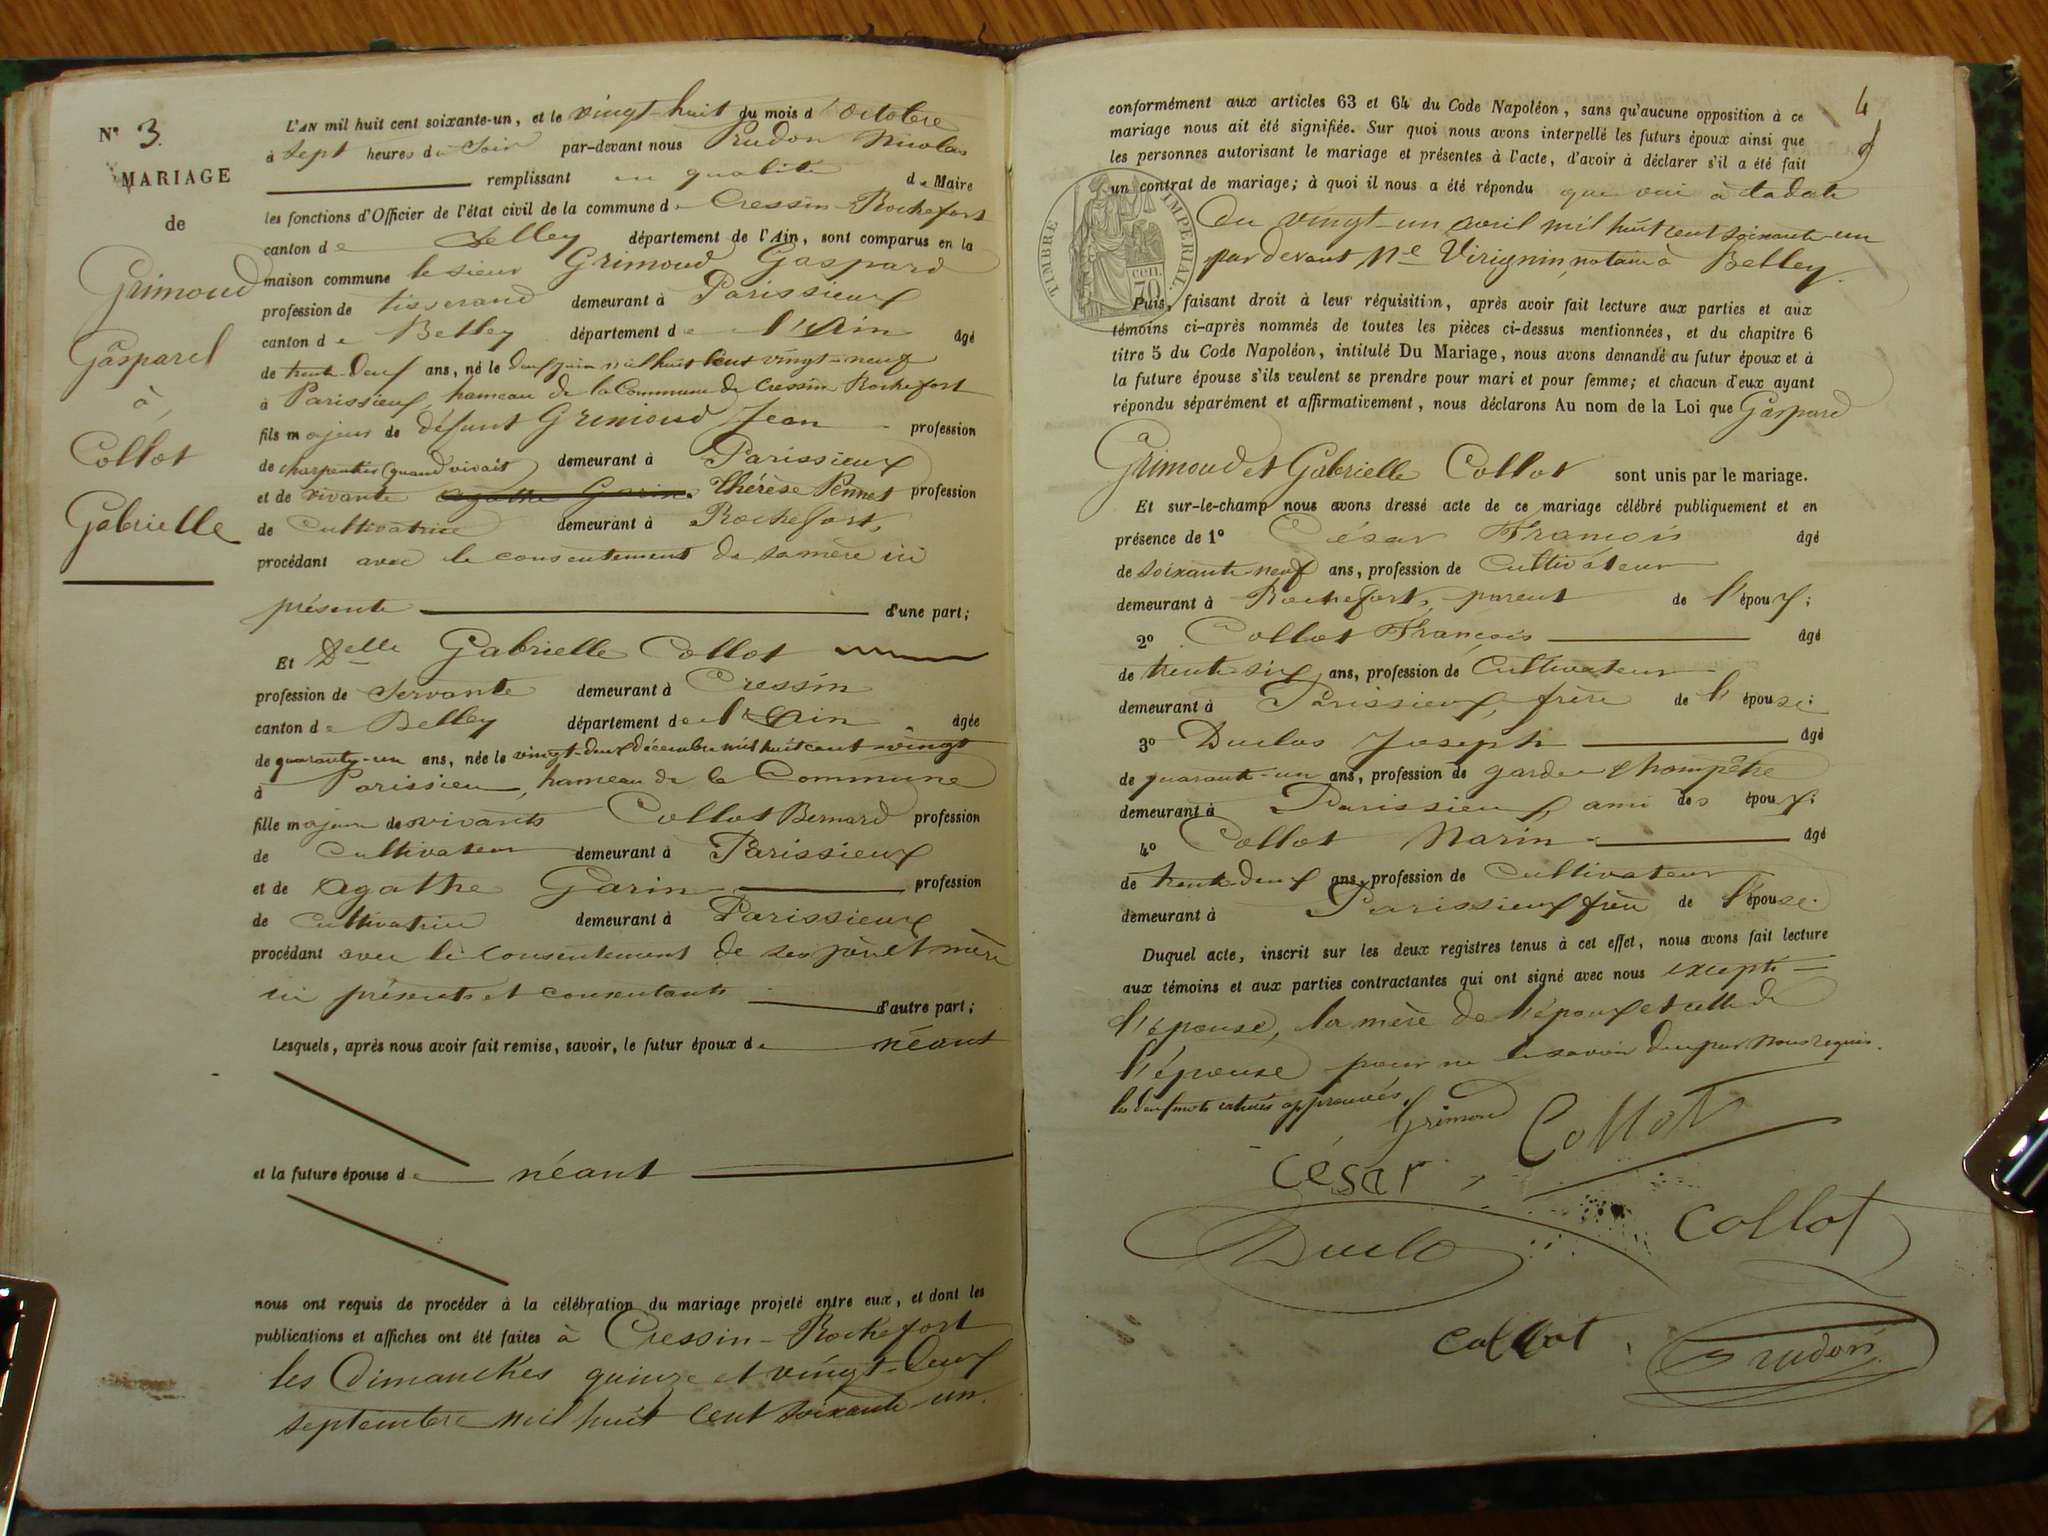 N° 3.
MARIAGE
de
Grimoud
Gaspard
à
Collot
Gabrielle
L'AN mil huit cent soixante-un, et le vingt-huit du mois d'octobre
à sept heures du Soir par-devant nous Prudon Nicolas
remplissant en qualité de Maire
les fonctions d'Officier de l'état civil de la commune de Cressin-Rochefort
canton de Belley département de l'Ain, sont comparus en la
maison commune le sieur Grimoud Gaspard
profession de tisserand demeurant à Parissieux
canton de Belley département de l'Ain âgé
de trente deux ans, né le deux juin mil huit cent vingt-neuf
à Parissieux, hameau de la Commune de Cressin Rochefort
fils majeur de défunt Grimoud Jean profession
de charpentier (quand vivait) demeurant à Parissieux
et de vivante Agathe Garin Thérèse Pennet profession
de Cultivatrice demeurant à Rochefort,
procédant avec le consentement de sa mère ici
présente d'une part;
Et Delle Gabrielle Collot
profession de Servante demeurant à Cressin
canton de Belley département de l'Ain âgée
de quarante-un ans, née le vingt-deux décembre mil huit cent vingt
à Parissieu, hameau de la Commune
fille majeure des vivants Collot Bernard profession
de Cultivateur demeurant à Parissieux
et de Agathe Garin profession
de Cultivatrice demeurant à Parissieux
procédant avec le consentement de ses père et mère
ici présents et consentants d'autre part;
Lesquels, après nous avoir fait remise, savoir, le futur époux de néant
et la future épouse de néant
nous ont requis de procéder à la célébration du mariage projeté entre eux, et dont les
publications et affiches ont été faites à Cressin-Rochefort
les Dimanches quinze et vingt-deux
septembre mil huit cent soixante-un.
4
conformément aux articles 63 et 64 du Code Napoléon, sans qu'aucune opposition à ce
mariage nous ait été signifiée. Sur quoi nous avons interpellé les futurs époux ainsi que
les personnes autorisant le mariage et présentes à l'acte, d'avoir à déclarer s'il a été fait
un contrat de mariage; à quoi il nous a été répondu que oui à la date
du vingt-un avril mil huit cent soixante-un
par devant Me Virignin, notaire à Belley.
TIMBRE IMPÉRIAL
70 CEN.
Puis, faisant droit à leur réquisition, après avoir fait lecture aux parties et aux
témoins ci-après nommés de toutes les pièces ci-dessus mentionnées, et du chapitre 6
titre 5 du Code Napoléon, intitulé Du Mariage, nous avons demandé au futur époux et à
la future épouse s'ils veulent se prendre pour mari et pour femme; et chacun d'eux ayant
répondu séparément et affirmativement, nous déclarons Au nom de la Loi que Gaspard
Grimoud et Gabrielle Collot sont unis par le mariage.
Et sur-le-champ nous avons dressé acte de ce mariage célébré publiquement et en
présence de 1° César François âgé
de soixante neuf ans, profession de Cultivateur
demeurant à Rochefort, parent de l'époux;
2° Collot François âgé
de trente six ans, profession de Cultivateur
demeurant à Parissieux, frère de l'épouse;
3° Duclos Joseph âgé
de quarante-un ans, profession de garde Champêtre
demeurant à Parissieux, ami des époux;
4° Collot Marin âgé
de trente-deux ans, profession de Cultivateur
demeurant à Parissieux frère de l'épouse.
Duquel acte, inscrit sur les deux registres tenus à cet effet, nous avons fait lecture
aux témoins et aux parties contractantes qui ont signé avec nous excepté
l'épouse, la mère de l'époux et celle de
l'épouse pour ne le savoir de ce par nous requis.
les deux mots raturés approuvés.
Grimoud Collot
César
Duclo Collot
Collot Prudon